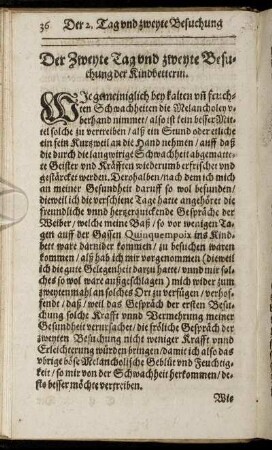 36 Der 2. Tag vnd zweyte Besuchung
Der Zweyte Tag vnd zweyte Besu-
chung der Kindbetterin.
WJe gemeiniglich bey kalten vn̄ feuch-
ten Schwachheiten die Melancholey v-
berhand nimmet / also ist kein besser Mit-
tel solche zu vertreiben / alß ein Stund oder etliche
ein fein Kurtzweil an die Hand nehmen / auff daß
die durch die langwirige Schwachheit abgematte-
te Geister vnd Kräfften wiederumb erfrischet vnd
gestärcker werden. Derohalben / nach dem ich mich
an meiner Gesundheit daruff so wol befunden /
dieweil ich die verschiene Tage hatte angehöret die
freundliche vnnd hertzerquickende Gespräche der
Weiber / welche meine Baß / so vor wenigen Ta-
gen auff der Gassen Quinquempoix ins Kind-
bett ware darnider kommen / zu besuchen waren
kommen / alß hab ich mir vorgenommen (dieweil
ich die gute Gelegenheit darzu hatte / vnnd mir sol-
ches so wol ware außgeschlagen) mich wider zum
zweytenmahl an solches Ort zu verfügen / verhof-
fende / daß / weil das Gespräch der ersten Besu-
chung solche Krafft vnnd Vermehrung meiner
Gesundheit verursachet / die fröliche Gespräch der
zweyten Besuchung nicht weniger Krafft vnnd
Erleichterung würden bringen / damit ich also das
vbrige böse Melancholische Geblüt vnd Feuchtig-
keit / so mir von der Schwachheit herkommen / de-
sto besser möchte vertreiben.
Wie